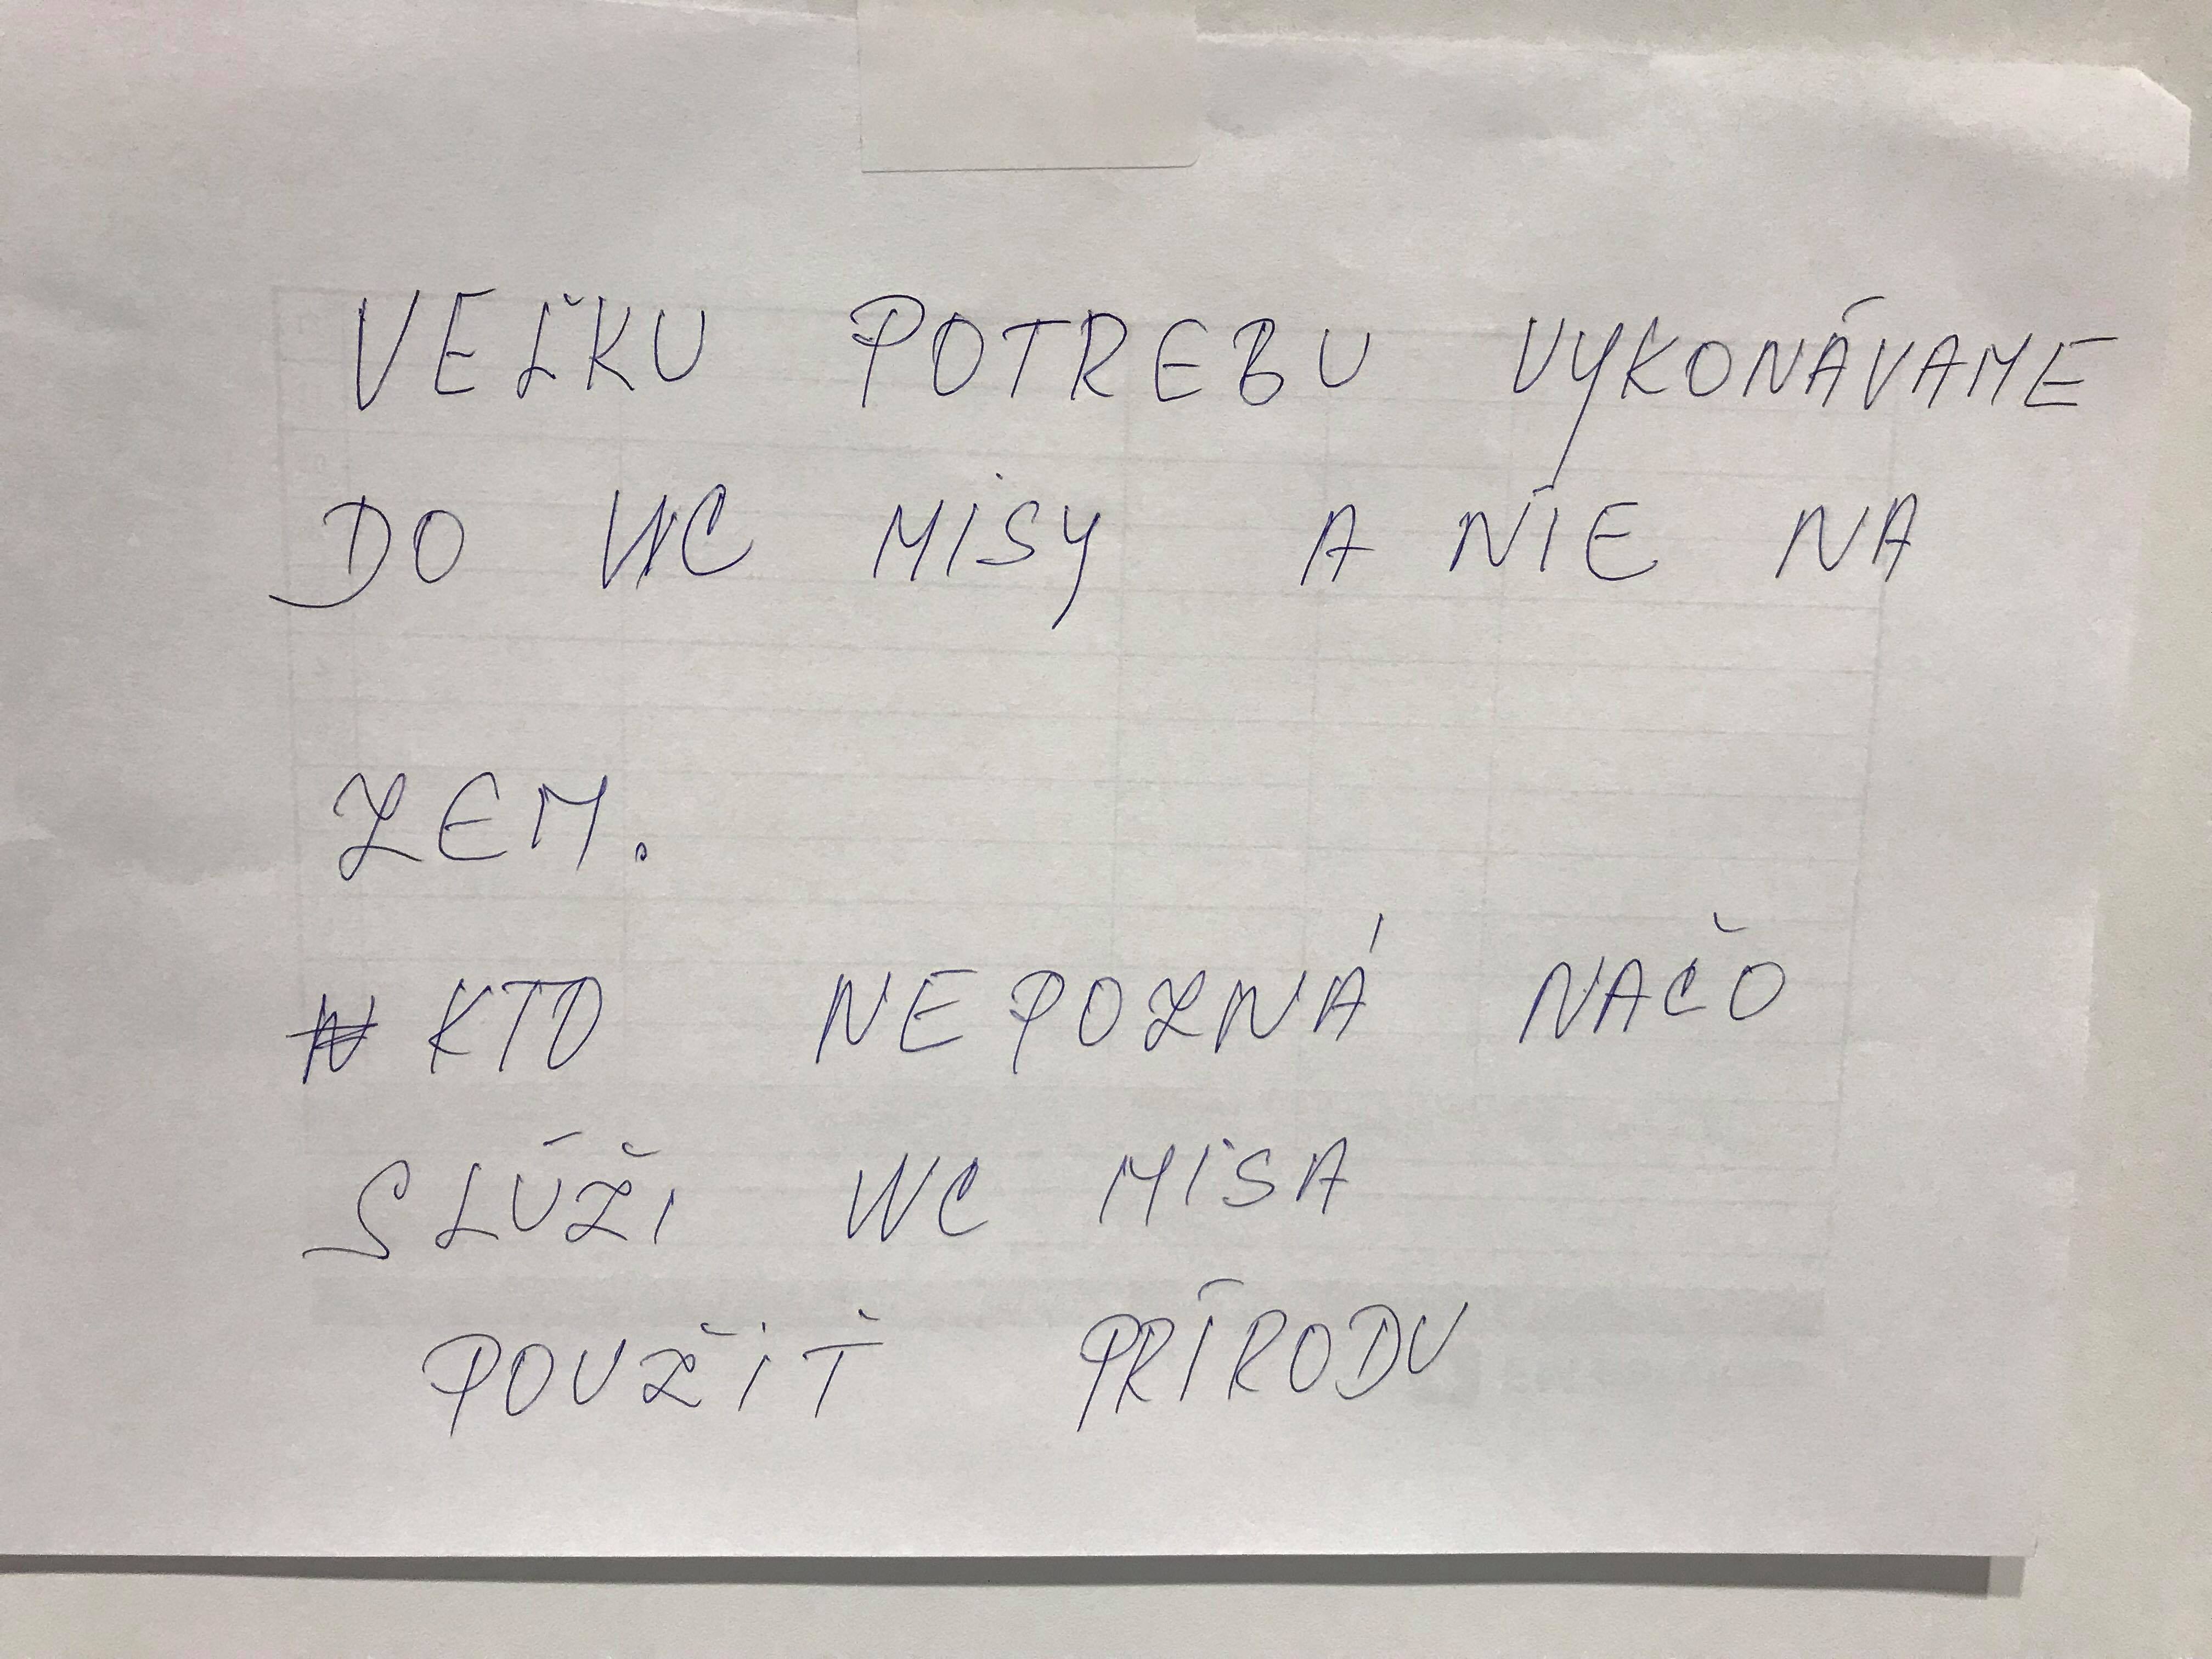 VEĽKU POTREBU VYKONÁVAME
DO WC MISY A NIE NA
ZEM.
KTO NEPOZNÁ NAČO
SLÚŽI WC MISA
POUŽIŤ PRÍRODU